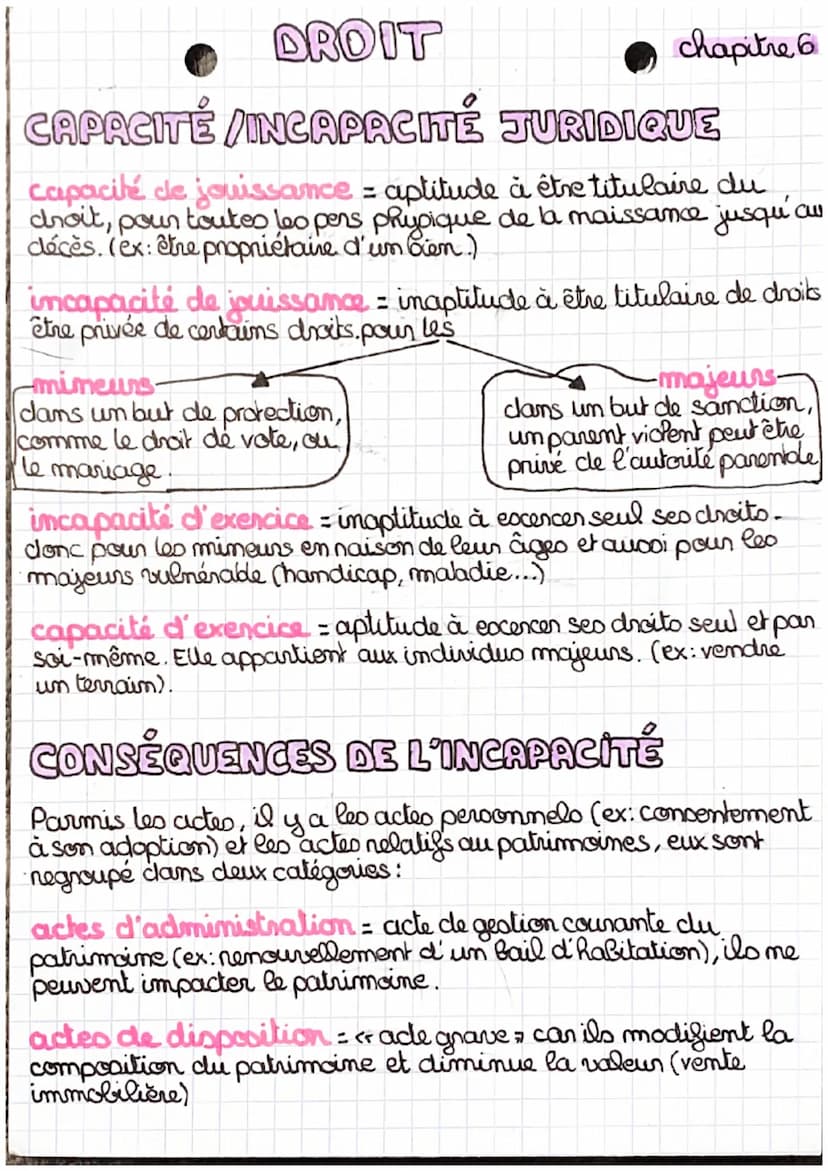 DROIT
chapitre 6
CAPACITÉ / INCAPACITÉ JURIDIQUE
capacité de jouissance = aptitude à être titulaire du
droit, pour toutes les pers physique de la naissance jusqu'au
décès. (ex: être propriétaire d'un bien.)
incapacité de jouissance = inaptitude à être titulaire de droits
être privée de certains droits. pour les
mineurs
dans un but de protection,
comme le droit de vote, ou
le mariage.
majeurs
dans un but de sanction,
un parent violent peut être
privé de l'autorité parentale
incapacité d'exercice = inaptitude à exercer seul ses droits.
donc pour les mineurs en raison de leur âges et aussi pour les
majeurs vulnérable (handicap, maladie...)
capacité d'exercice = aptitude à exercer ses droits seul et par
soi-même. Elle appartient aux individus majeurs. (ex: vendre
un terrain).
CONSÉQUENCES DE L'INCAPACITÉ
Parmis les actes, il y a les actes personnels (ex: consentement
à son adoption) et les actes relatifs au patrimoines, eux sont
regroupé dans deux catégories :
actes d'administration = acte de gestion courante du
patrimoine (ex: renouvellement d'un bail d'habitation), ils ne
peuvent impacter le patrimoine.
actes de disposition = « acte grave » car ils modifient la
composition du patrimoine et diminue la valeur (vente
immobilière)